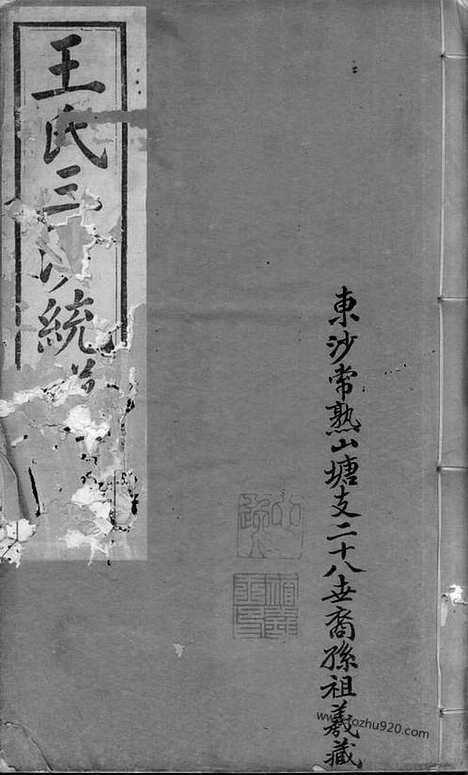 東沙常熟山塘支二十八世裔孫祖羲藏
王氏三沙統
www.zozhu920.com